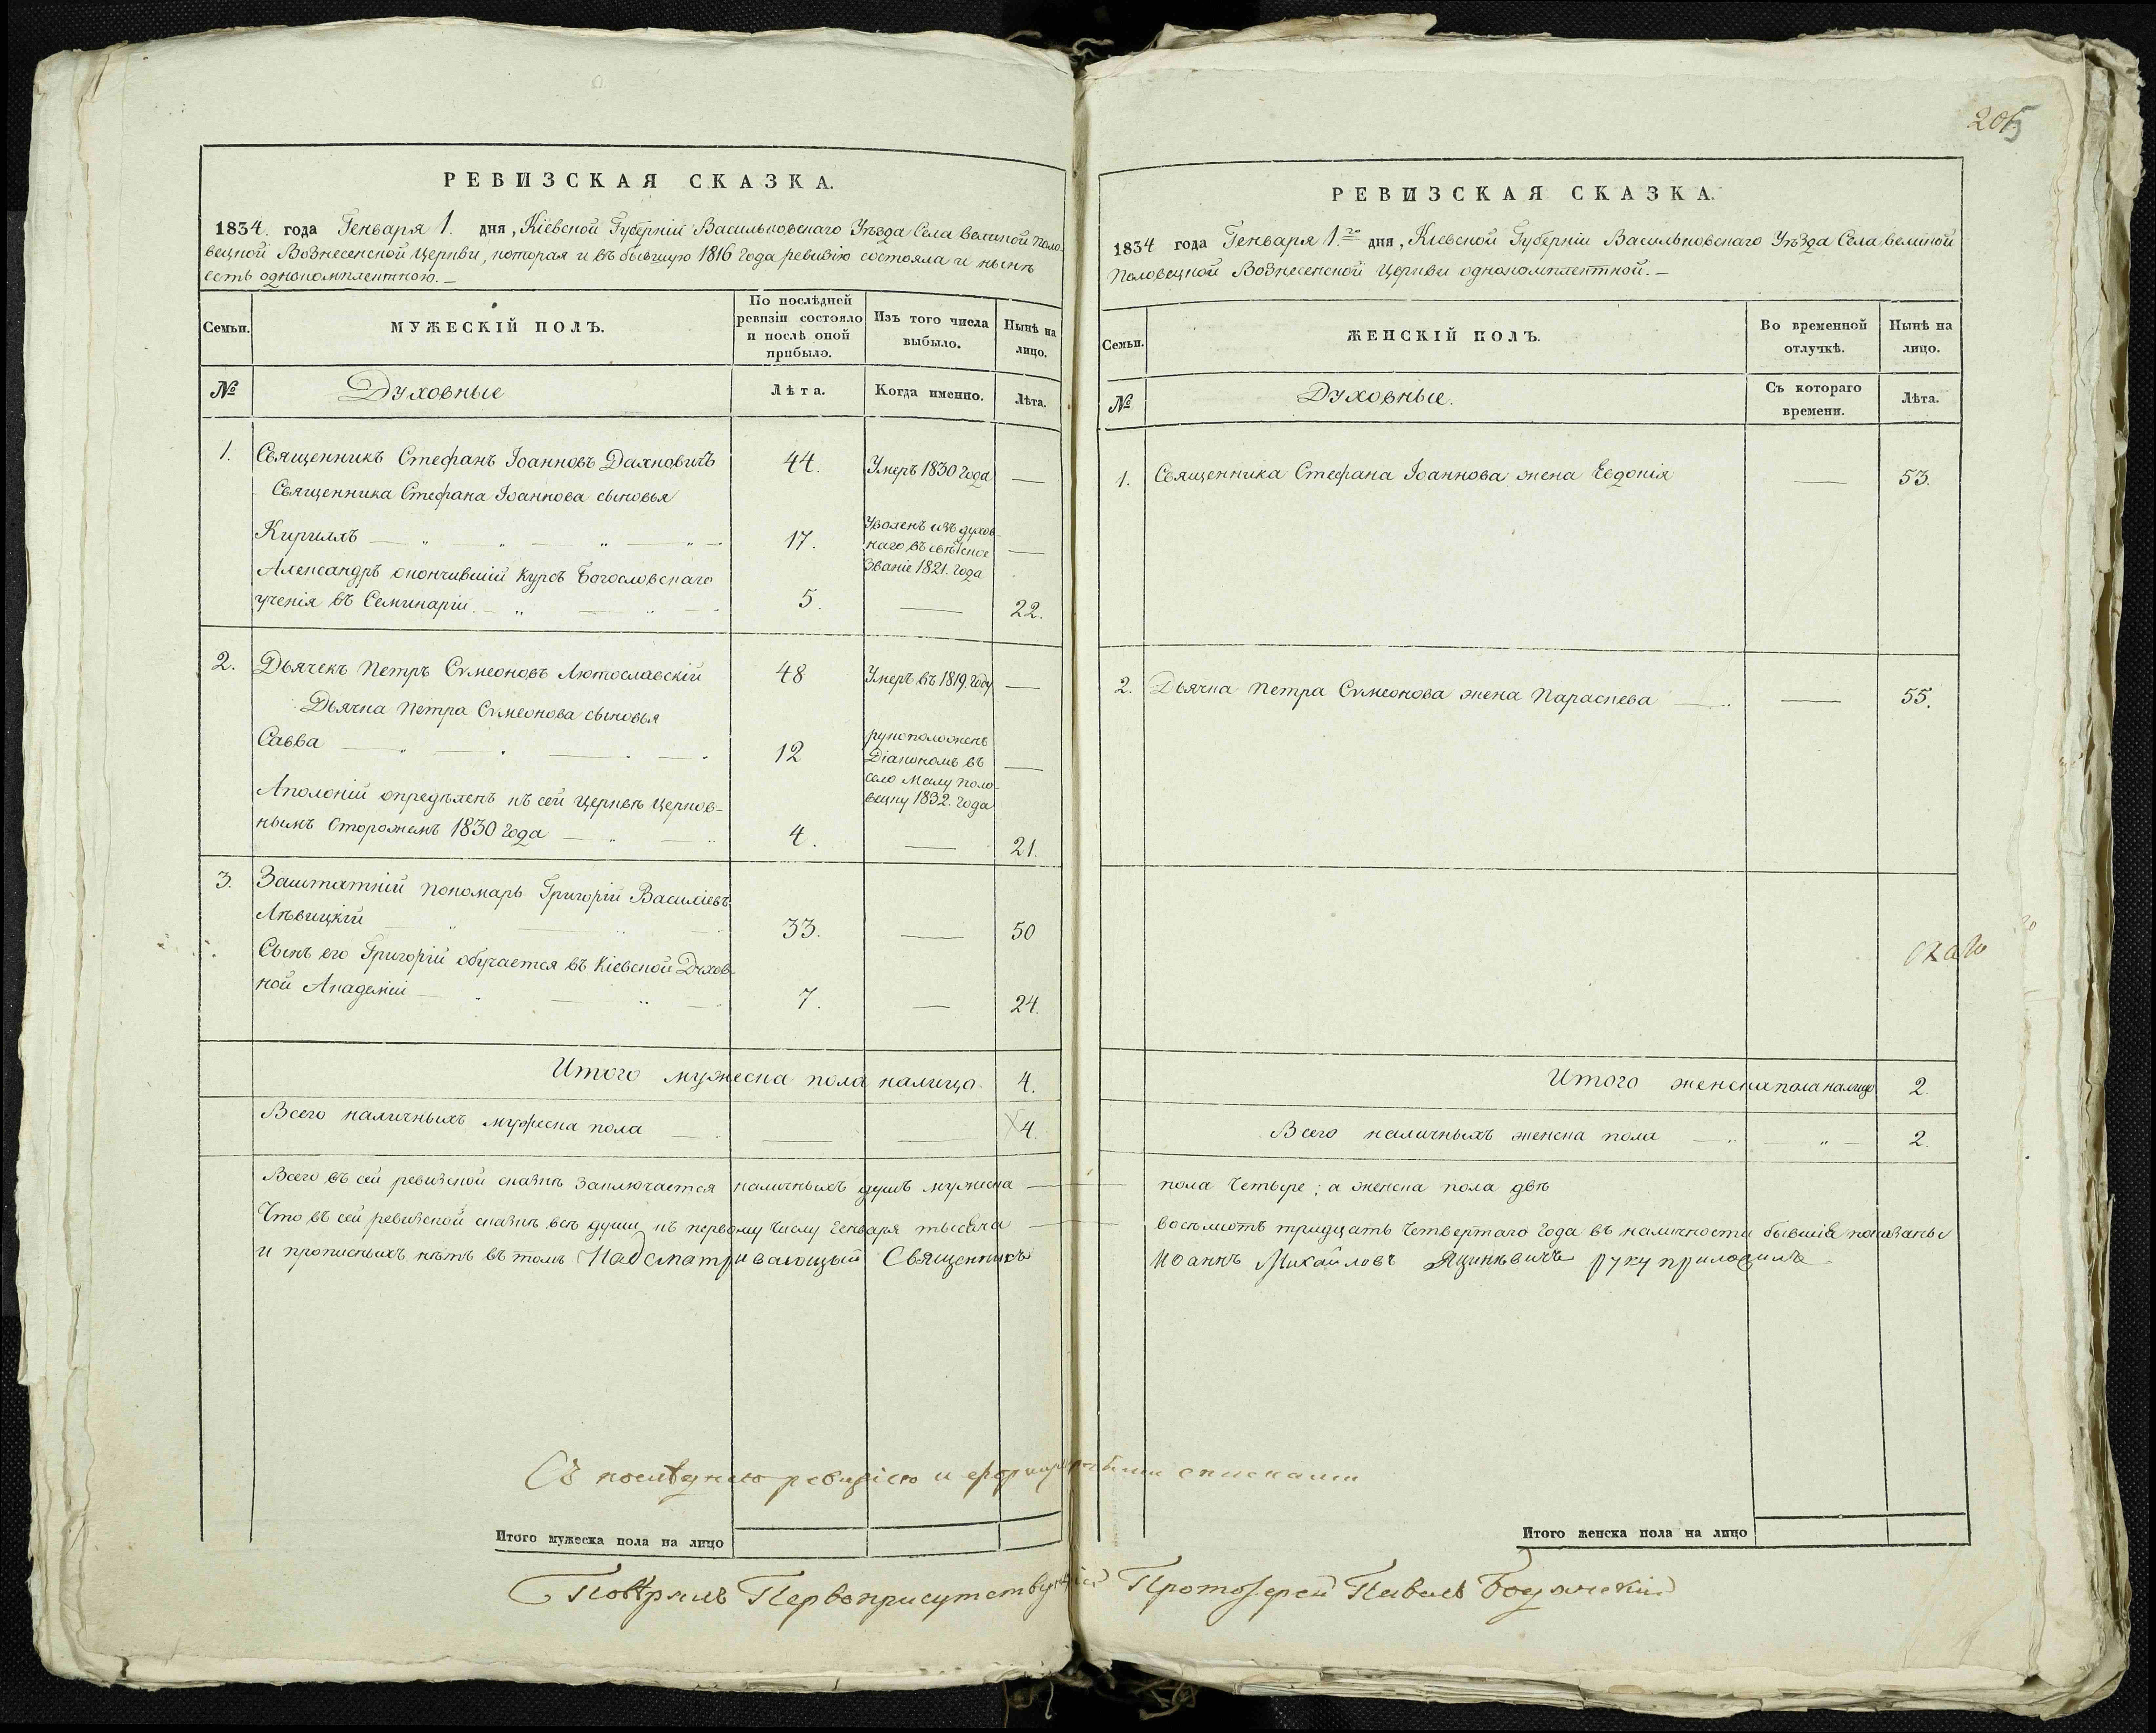 РЕВИЗСКАЯ СКАЗКА.
1834. года Генваря 1. дня, Кіевской Губерніи Васильковскаго Уѣзда Села великой Поло-
вецкой Вознесенской Церкви, которая и въ бывшую 1816 Года ревизію состояла и нынѣ
есть однокомплектною. —
Семьи.
МУЖЕСКІЙ ПОЛЪ.
По послѣдней ревизіи состояло и послѣ оной прибыло.
Изъ того числа выбыло.
Нынѣ на лицо.
№
Духовные
Лѣта.
Когда именно.
Лѣта.
1. Священникъ Стефанъ Іоанновъ Даxновичъ 44. Умеръ 1830 года —
Священника Стефана Іоаннова сыновья
Кириллъ 17. Уволенъ изъ духов-
наго въ свѣтское —
званіе 1821. года
Александръ окончившій курсъ Богословскаго
ученія въ Семинаріи 5. — 22.
2. Дьячекъ Петръ Сѵмеоновъ Лютославскій 48 Умеръ въ 1819. году —
Дьячка Петра Сѵмеонова сыновья
Савва 12 рукоположенъ
Діакономъ въ —
село Малу Поло-
вецку 1832. года
Аполоній опредѣленъ къ сей Церквѣ Церков-
нымъ Сторожемъ 1830 года 4. — 21.
3. Заштатній пономарь Григорій Василіевъ
Лѣвицкій 33. — 50
Сынъ его Григорій обучается въ Кіевской Духов-
ной Академіи 7. — 24.
Итого мужеска пола налицо 4.
Всего наличныхъ мужеска пола — — 4.
Всего въ сей ревизской сказкѣ заключается наличныхъ душъ мужеска —
Что въ сей ревизской сказкѣ всѣ души, къ первому числу Генваря тысяча —
и прописныхъ нѣтъ въ томъ Надсматривающый Священникъ
Съ послѣднею ревизіею и
Итого мужеска пола на лицо
Повѣрялъ Первоприсутствующій
205
РЕВИЗСКАЯ СКАЗКА.
1834 года Генваря 1.го дня, Кіевской Губерніи Васильковскаго Уѣзда Села великой
Половецкой Вознесенской Церкви однокомплектной. —
Семьи.
ЖЕНСКІЙ ПОЛЪ.
Во временной отлучкѣ.
Нынѣ на лицо.
№
Духовные.
Съ котораго времени.
Лѣта.
1. Священника Стефана Іоаннова жена Евдокія — 53.
2. Дьячка Петра Сѵмеонова жена Параскева — 55.
Итого женска пола налицо 2.
Всего наличныхъ женска пола 2.
пола четыре; а женска пола двѣ
восемьсотъ тридцать четвертаго года въ наличности бывшія показаны
Иоаннъ Михайловъ Яцинкѣвичъ руку приложилъ
списками
Итого женска пола на лицо
Протоіерей Павелъ Бодянскій